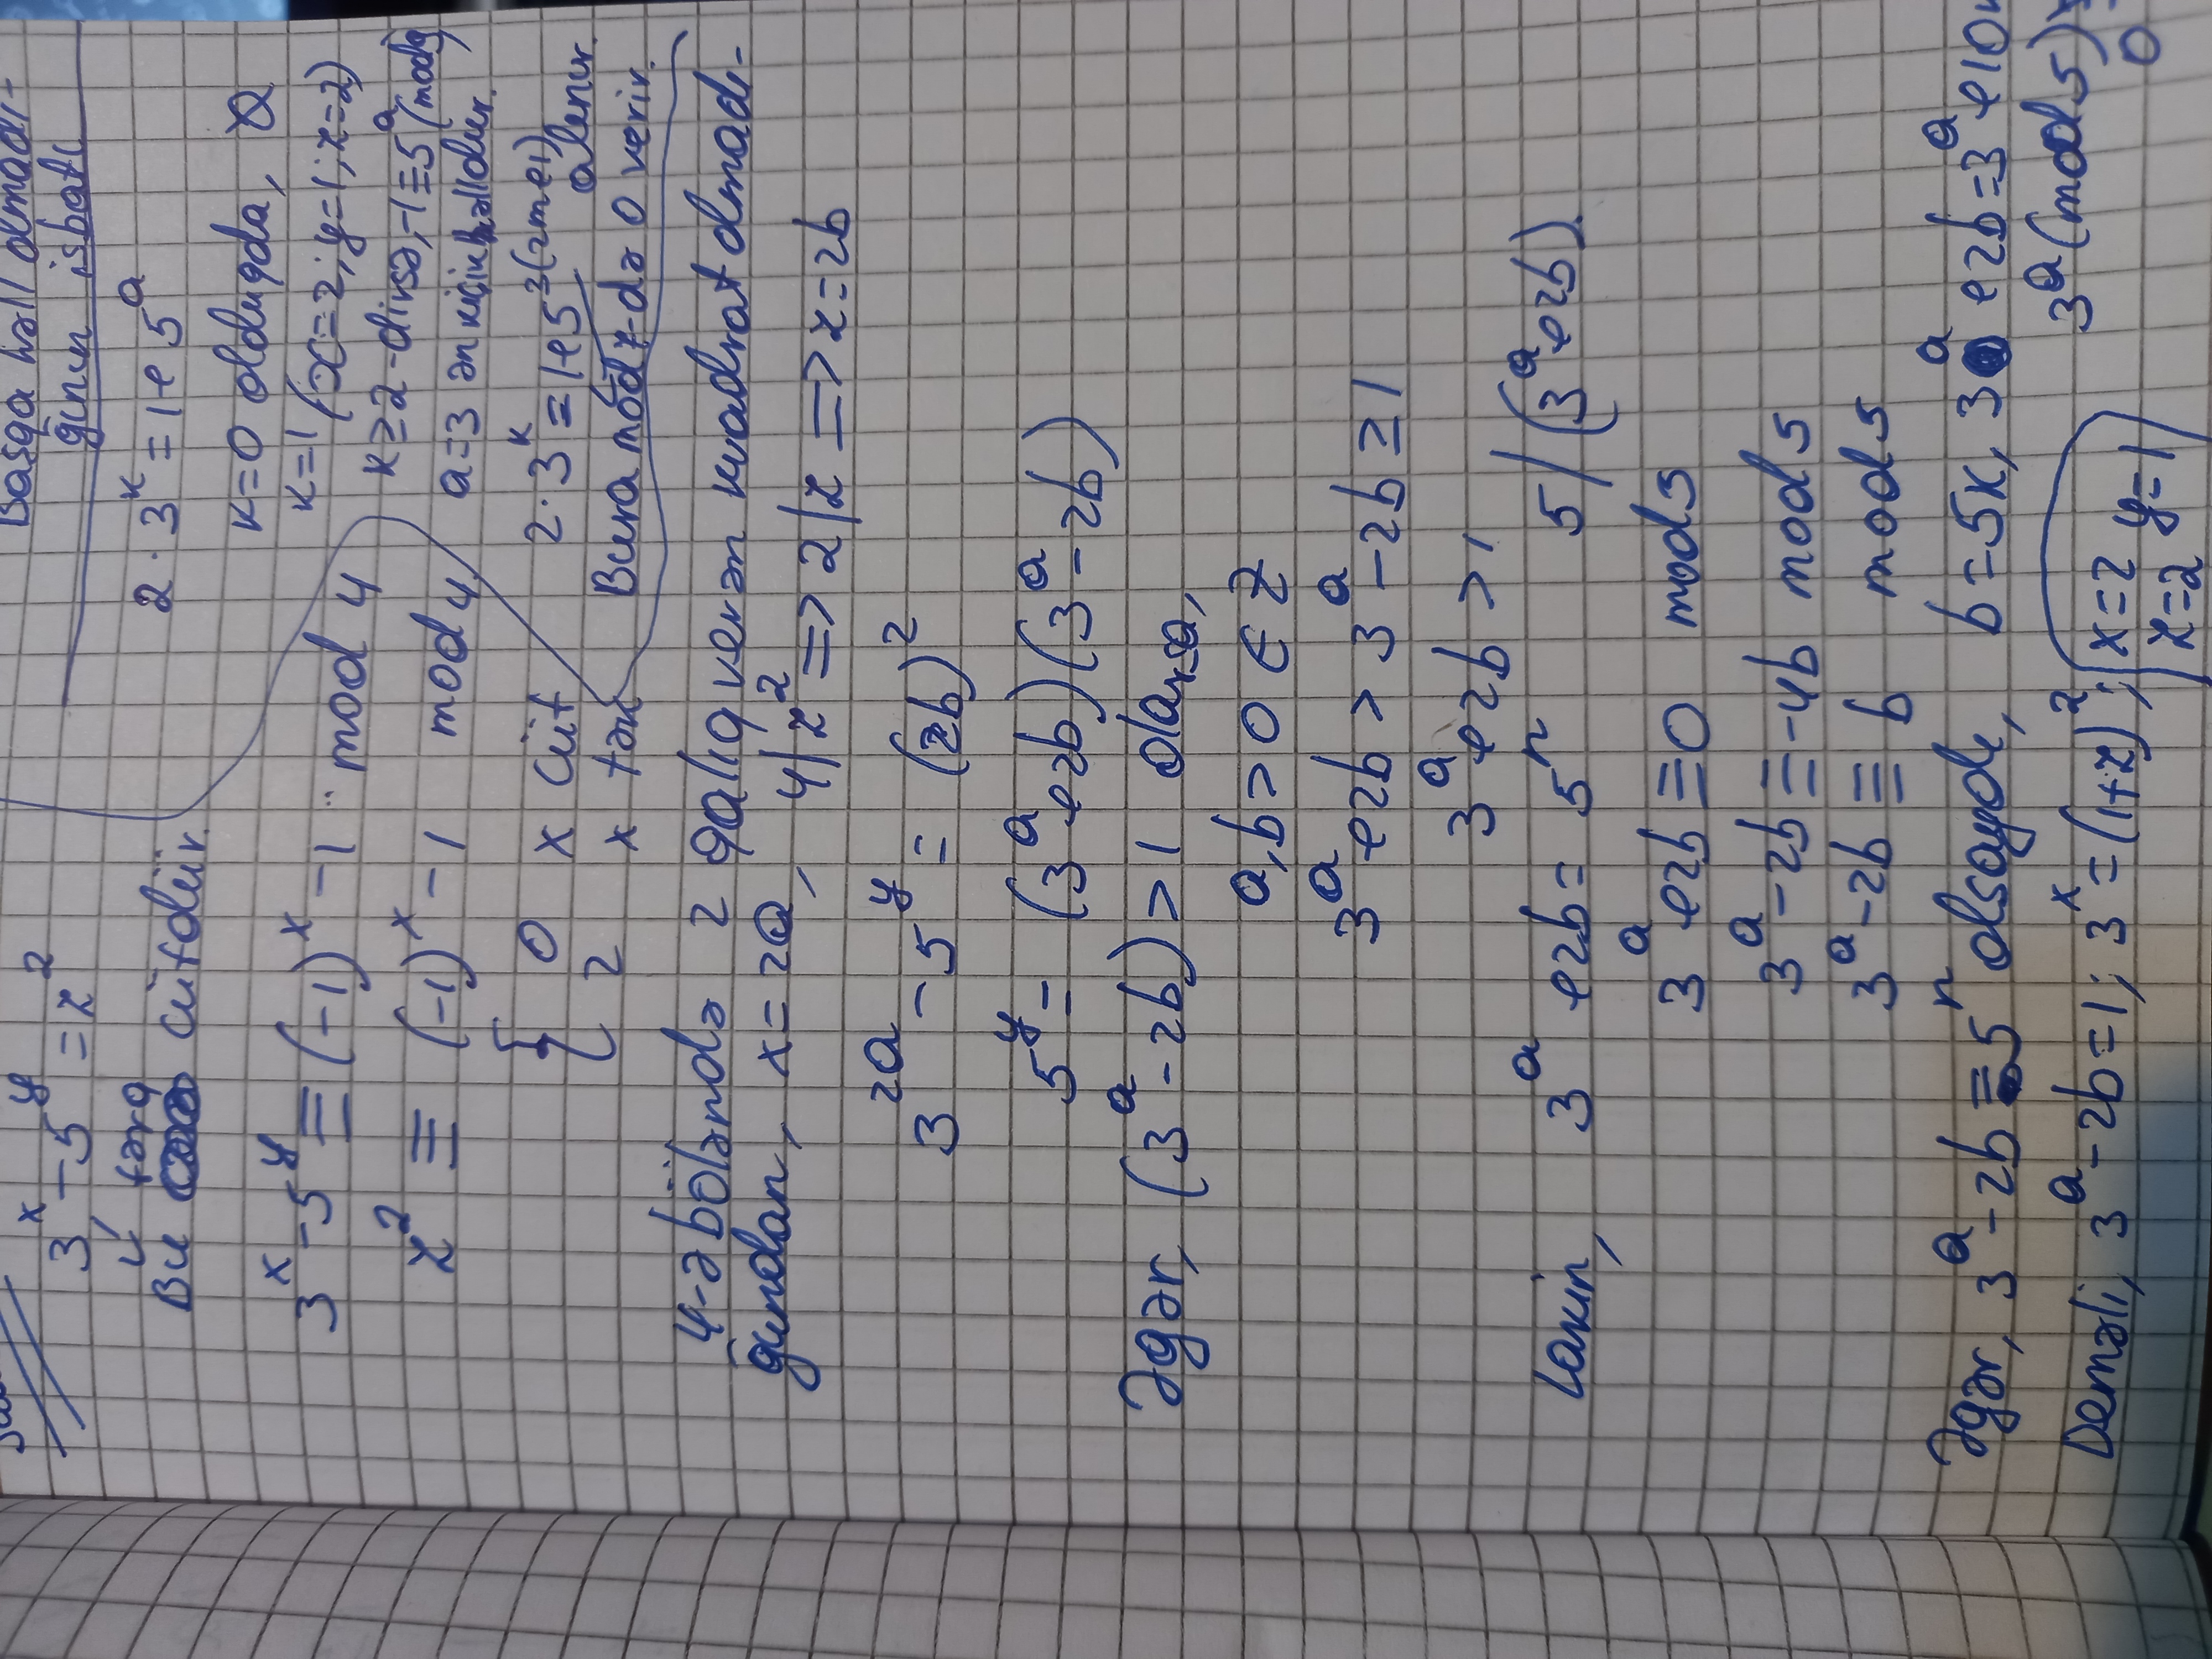 3^x - 5^y = z^2
fərq
Bu cütdür.
3^x - 5^y ≡ (-1)^x - 1 mod 4
z^2 ≡ (-1)^x - 1 mod 4
{ 0 x cüt
2 x tək
Başqa həll olmadı-
ğının isbatı
2 · 3^k = 1+5^a
k=0 olduqda, Ø
k=1 (x=2; y=1; z=2)
k≥2-dirsə, -1≡5^a (mod9)
a=3 ən kiçik həlldir.
2 · 3^k = 1+5^3(2m+1) alınır.
Bura mod7-də 0 verir.
4-ə böləndə 2 qalıq verən kvadrat olmadı-
ğından, x=2a, 4|z^2 => 2|z => z=2b
3^2a - 5^y = (2b)^2
5^y = (3^a+2b)(3^a-2b)
Əgər, (3^a-2b)>1 olarsa,
a,b>0 ∈ Z
3^a+2b > 3^a-2b ≥ 1
3^a+2b > 1
Lakin, 3^a+2b = 5^n 5|(3^a+2b).
3^a+2b ≡ 0 mod5
3^a-2b ≡ -4b mod5
3^a-2b ≡ b mod5
Əgər, 3^a-2b = 5^n olsaydı, b=5k, 3^a+2b=3^a+10k
3^a (mod 5)
0
Deməli, 3^a-2b=1; 3^x=(1+z)^2; x=2 y=1
z=2